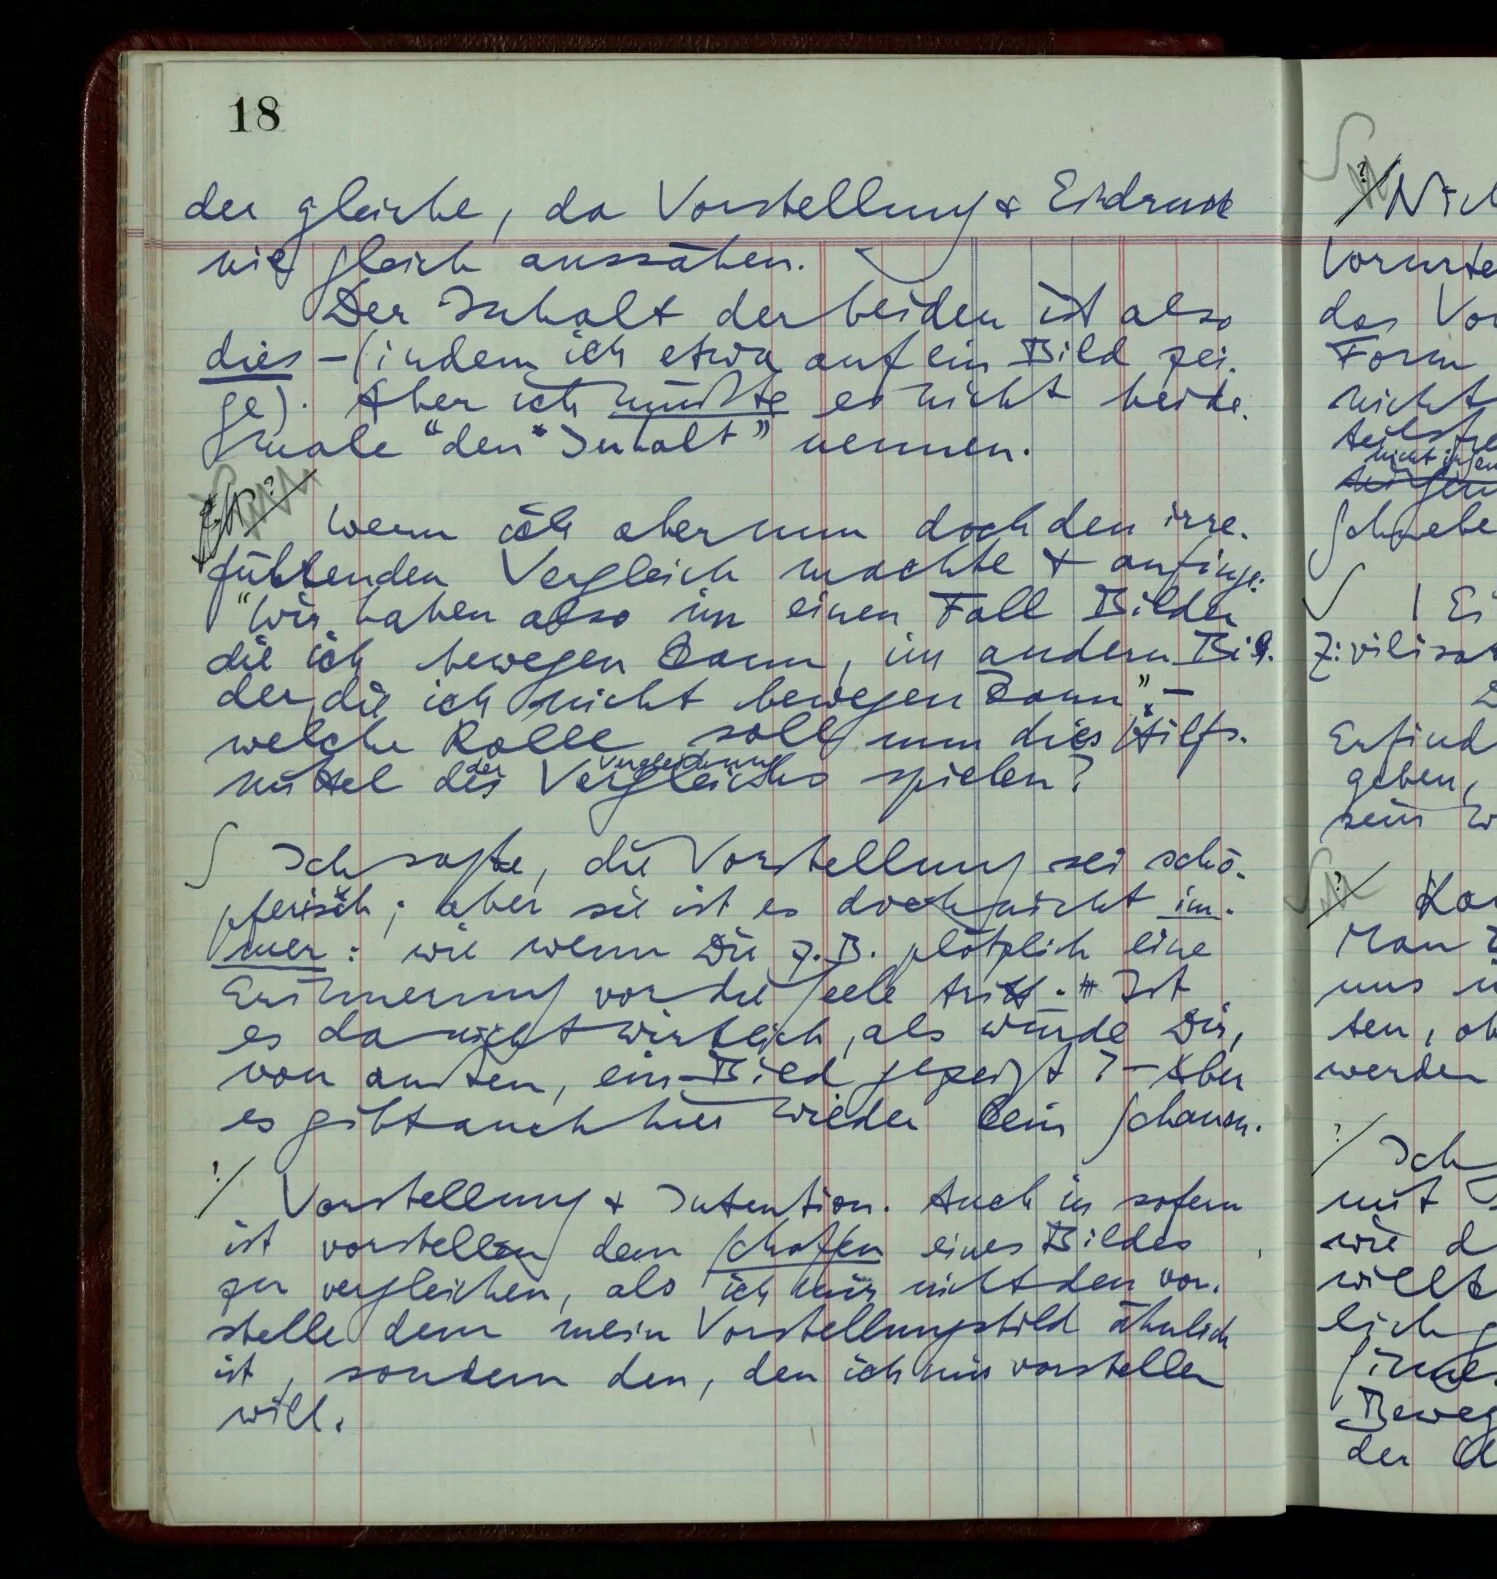 18
der gleiche, da Vorstellung & Eindruck
nie gleich aussähen.
Der Inhalt der beiden ist also
dies – (indem ich etwa auf ein Bild zei-
ge). Aber ich müßte es nicht beide-
male "den Inhalt" nennen.
Wenn ich aber nun doch den irre-
führenden Vergleich machte & anfinge:
"Wir haben also im einen Fall Bilder
die ich bewegen kann, im andern Bil-
der die ich nicht bewegen kann" –
welche Rolle soll nun dies Hilfs-
der Vergleichung
mittel des Vergleichs spielen?
∫ Ich sagte, die Vorstellung sei schö-
pferisch; aber sie ist es doch nicht im-
mer: wie wenn Dir z.B. plötzlich eine
Erinnerung vor die Seele tritt. Ist
es da nicht wirklich, als würde Dir,
von außen, ein Bild gezeigt? – Aber
es gibt auch hier wieder kein Schauen.
?/ Vorstellung & Intention. Auch in sofern
ist vorstellen dem Schaffen eines Bildes
zu vergleichen, als ich mir nicht den vor-
stelle dem mein Vorstellungsbild ähnlich
ist, sondern den, den ich mir vorstellen
will.
?/ Nic
Vorurte
das Vor
Form
nicht
Schwebe
∫ | Ei
Zivilisat
Erfind
geben,
sein W
Kan
Man
uns
ten, ob
werden
?/ Ich
mit
wie d
willk
lich
Beweg
der